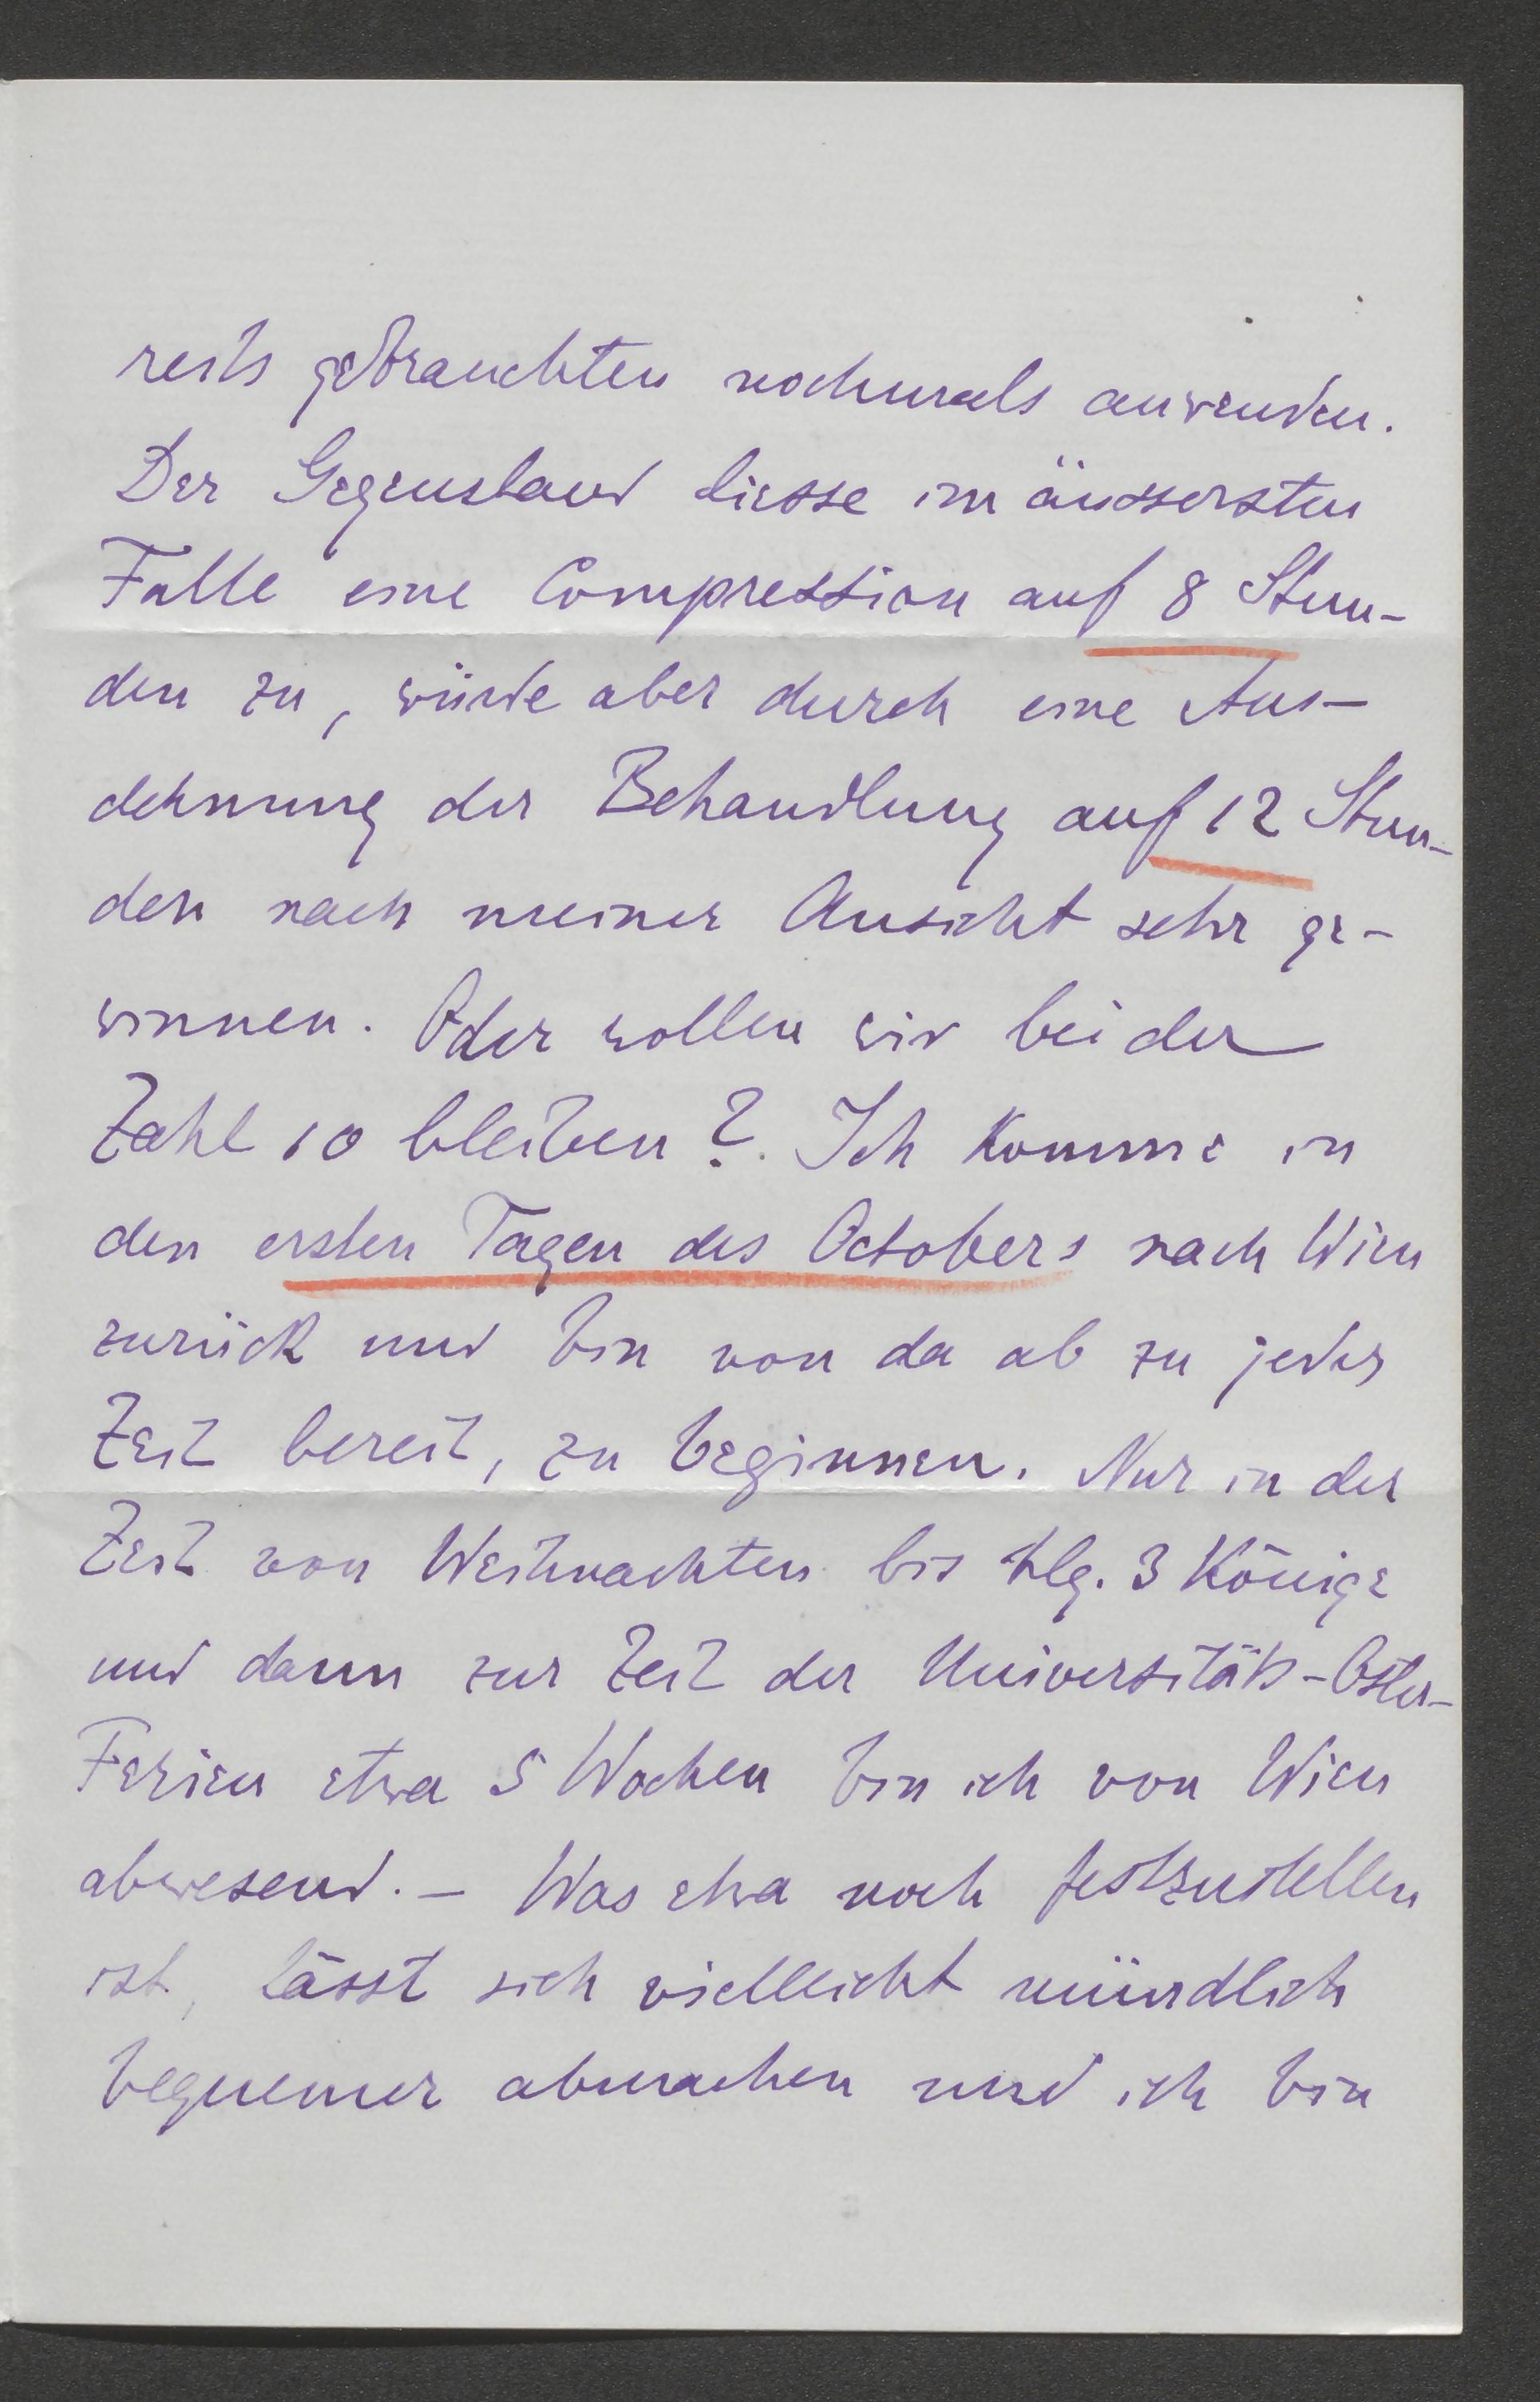 reits gebrauchten nochmals anwenden.
Der Gegenstand liesse im äussersten
Falle eine Compression auf 8 Stun-
den zu, würde aber durch eine Aus-
dehnung der Behandlung auf 12 Stun-
den nach meiner Ansicht sehr ge-
winnen. Oder wollen wir bei der
Zahl 10 bleiben? Ich komme in
den ersten Tagen des Octobers nach Wien
zurück und bin von da ab zu jeder
Zeit bereit, zu beginnen. Nur in der
Zeit von Weihnachten bis Hlg. 3 Könige
und dann zur Zeit der Universitäts-Oster-
Ferien etwa 5 Wochen bin ich von Wien
abwesend. – Was etwa noch festzustellen
ist, lässt sich vielleicht mündlich
bequemer abmachen und ich bin